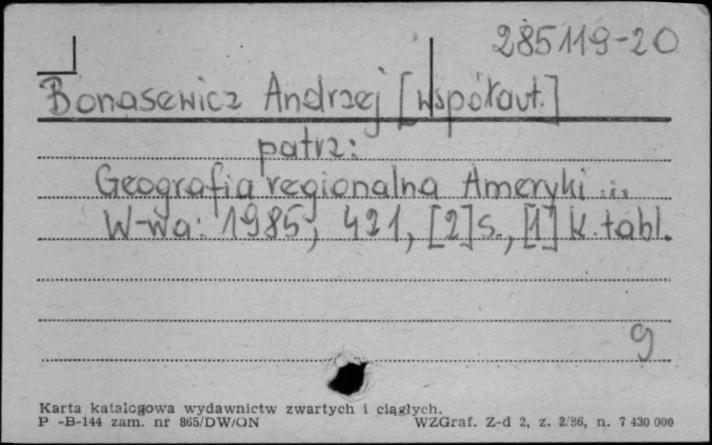 285119-20
Bonasewicz Andrzej [współaut.]
patrz:
Geografia regionalna Ameryki ...
W-wa: 1985, 421, [2] s., [1] k. tabl.
9
Karta katalogowa wydawnictw zwartych i ciągłych.
P -B-144 zam. nr 865/DW/ON WZGraf. Z-d 2, z. 2/86, n. 7 430 000